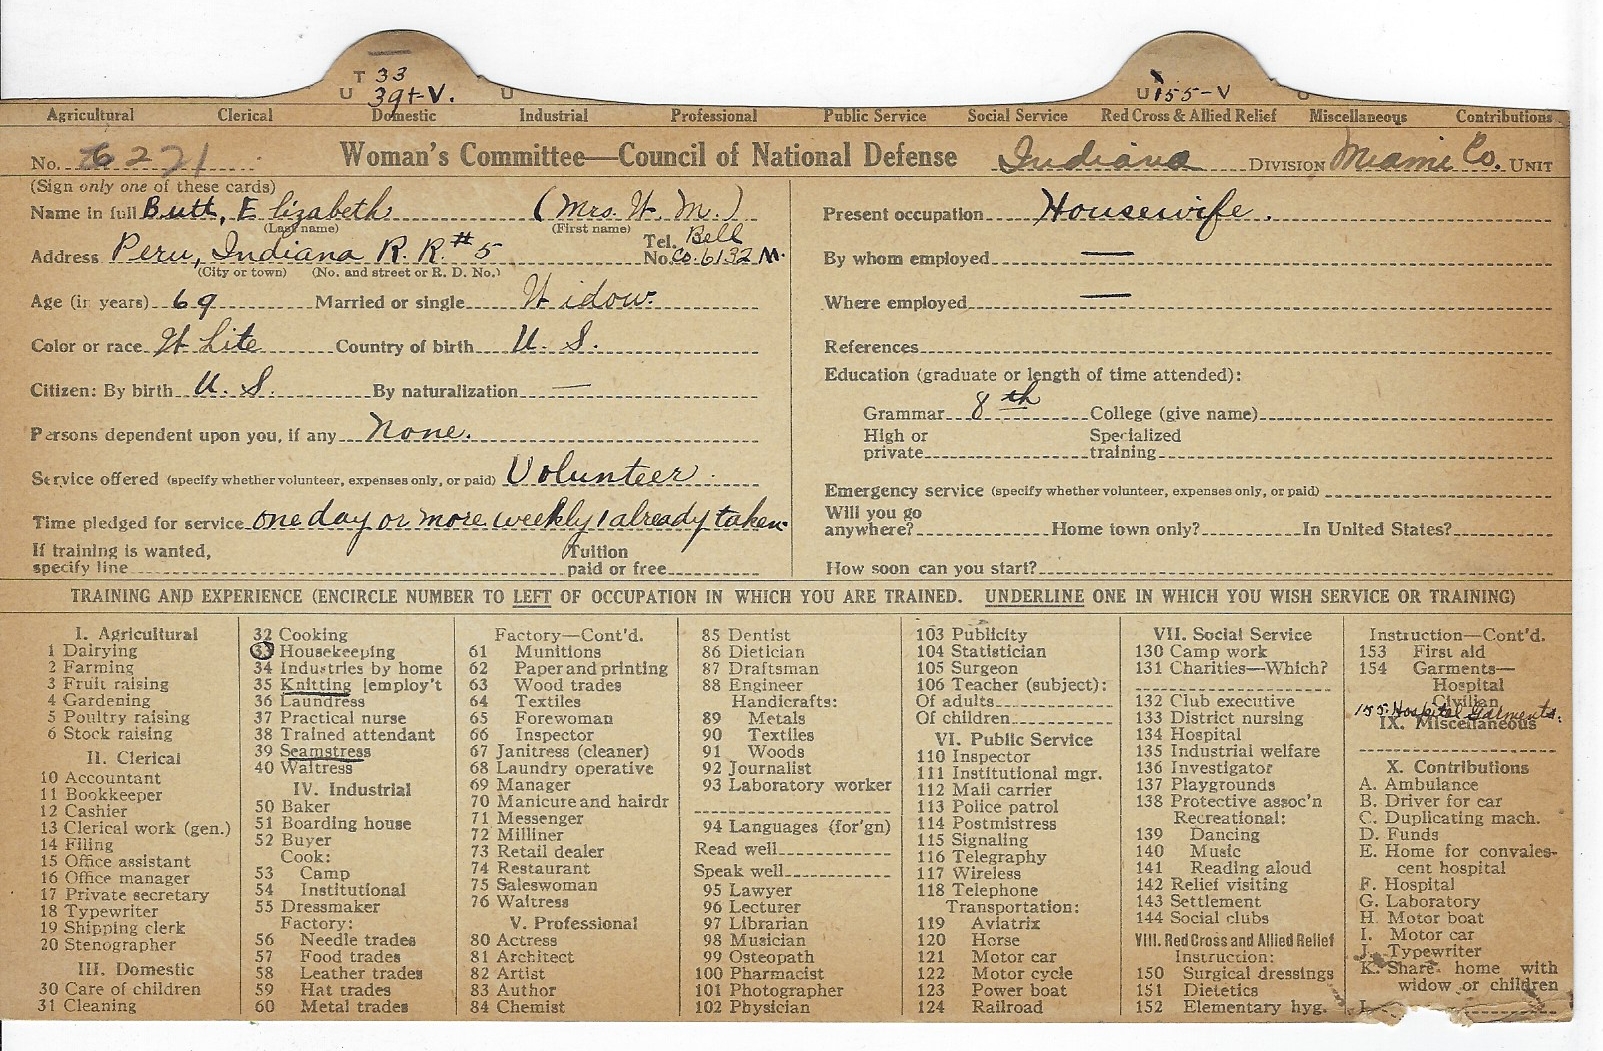 T 33
U 39+-V. U U 155-V U
Agricultural Clerical Domestic Industrial Professional Public Service Social Service Red Cross & Allied Relief Miscellaneous Contributions
No. 6221 Woman's Committee—Council of National Defense Indiana DIVISION Miami Co. UNIT
(Sign only one of these cards)
Name in full Butt, Elizabeth (Mrs. W. M.)
(Last name) (First name)
Address Peru, Indiana R. R. #5 Tel. No. Bell Co. 6132 M.
(City or town) (No. and street or R. D. No.)
Age (in years) 69 Married or single Widow.
Color or race White Country of birth U. S.
Citizen: By birth U. S. By naturalization —
Persons dependent upon you, if any None.
Service offered (specify whether volunteer, expenses only, or paid) Volunteer.
Time pledged for service one day or more weekly/already taken
If training is wanted, specify line Tuition paid or free
Present occupation Housewife.
By whom employed —
Where employed —
References
Education (graduate or length of time attended):
Grammar 8th College (give name)
High or private Specialized training
Emergency service (specify whether volunteer, expenses only, or paid)
Will you go anywhere? Home town only? In United States?
How soon can you start?
TRAINING AND EXPERIENCE (ENCIRCLE NUMBER TO LEFT OF OCCUPATION IN WHICH YOU ARE TRAINED. UNDERLINE ONE IN WHICH YOU WISH SERVICE OR TRAINING)
I. Agricultural
1 Dairying
2 Farming
3 Fruit raising
4 Gardening
5 Poultry raising
6 Stock raising
II. Clerical
10 Accountant
11 Bookkeeper
12 Cashier
13 Clerical work (gen.)
14 Filing
15 Office assistant
16 Office manager
17 Private secretary
18 Typewriter
19 Shipping clerk
20 Stenographer
III. Domestic
30 Care of children
31 Cleaning
32 Cooking
33 Housekeeping
34 Industries by home
35 Knitting [employ't
36 Laundress
37 Practical nurse
38 Trained attendant
39 Seamstress
40 Waitress
IV. Industrial
50 Baker
51 Boarding house
52 Buyer
Cook:
53 Camp
54 Institutional
55 Dressmaker
Factory:
56 Needle trades
57 Food trades
58 Leather trades
59 Hat trades
60 Metal trades
Factory—Cont'd.
61 Munitions
62 Paper and printing
63 Wood trades
64 Textiles
65 Forewoman
66 Inspector
67 Janitress (cleaner)
68 Laundry operative
69 Manager
70 Manicure and hairdr
71 Messenger
72 Milliner
73 Retail dealer
74 Restaurant
75 Saleswoman
76 Waitress
V. Professional
80 Actress
81 Architect
82 Artist
83 Author
84 Chemist
85 Dentist
86 Dietician
87 Draftsman
88 Engineer
Handicrafts:
89 Metals
90 Textiles
91 Woods
92 Journalist
93 Laboratory worker
94 Languages (for'gn)
Read well
Speak well
95 Lawyer
96 Lecturer
97 Librarian
98 Musician
99 Osteopath
100 Pharmacist
101 Photographer
102 Physician
103 Publicity
104 Statistician
105 Surgeon
106 Teacher (subject):
Of adults
Of children
VI. Public Service
110 Inspector
111 Institutional mgr.
112 Mail carrier
113 Police patrol
114 Postmistress
115 Signaling
116 Telegraphy
117 Wireless
118 Telephone
Transportation:
119 Aviatrix
120 Horse
121 Motor car
122 Motor cycle
123 Power boat
124 Railroad
VII. Social Service
130 Camp work
131 Charities—Which?
132 Club executive
133 District nursing
134 Hospital
135 Industrial welfare
136 Investigator
137 Playgrounds
138 Protective assoc'n
Recreational:
139 Dancing
140 Music
141 Reading aloud
142 Relief visiting
143 Settlement
144 Social clubs
VIII. Red Cross and Allied Relief
Instruction:
150 Surgical dressings
151 Dietetics
152 Elementary hyg.
Instruction—Cont'd.
153 First aid
154 Garments—
Hospital
Civilian
155 Hospital Garments.
IX. Miscellaneous
X. Contributions
A. Ambulance
B. Driver for car
C. Duplicating mach.
D. Funds
E. Home for convales-
cent hospital
F. Hospital
G. Laboratory
H. Motor boat
I. Motor car
J. Typewriter
K. Share home with
widow or children
L.